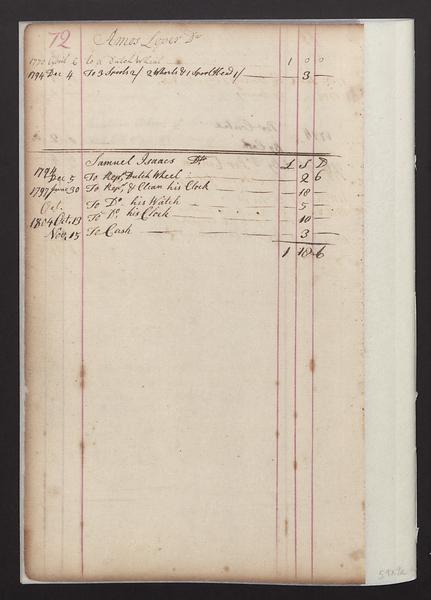 72 Amos Lever Dr
1770 April 6 to a Dutch Wheel 1 0 0
1794 Dec 4 To 3 Spools 2/ 2 Whorls & 1 Spool Head 1/ 3
Samuel Isaacs Dr. £ S D
1794 Dec. 5 To Repg. Dutch Wheel 2 6
1797 June 30 To Repg. & Clean his Clock 18
Oct. To Do. his Watch 5
1804 Oct. 13 To Do. his Clock 10
Nov. 15 To Cash 3
1 18 6